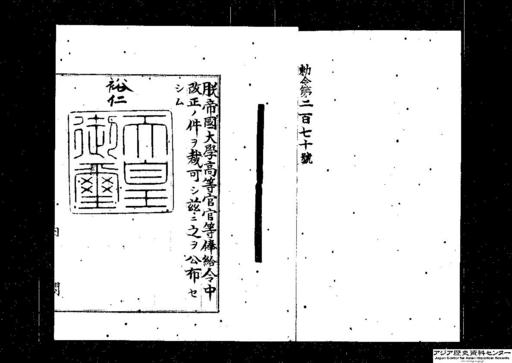 勅令第二百七十號
朕帝國大學高等官官等俸給令中
改正ノ件ヲ裁可シ茲ニ之ヲ公布セ
シム
裕仁
天皇
御璽
内
閣
アジア歴史資料センター
Japan Center for Asian Historical Records